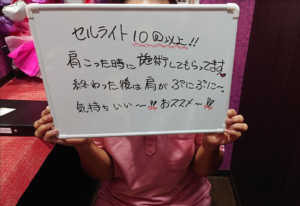 セルライト10回以上!!
肩こった時に施術してもらってます
終わった後は肩がぷにぷに〜
気持ちいい〜!!おススメ〜!!